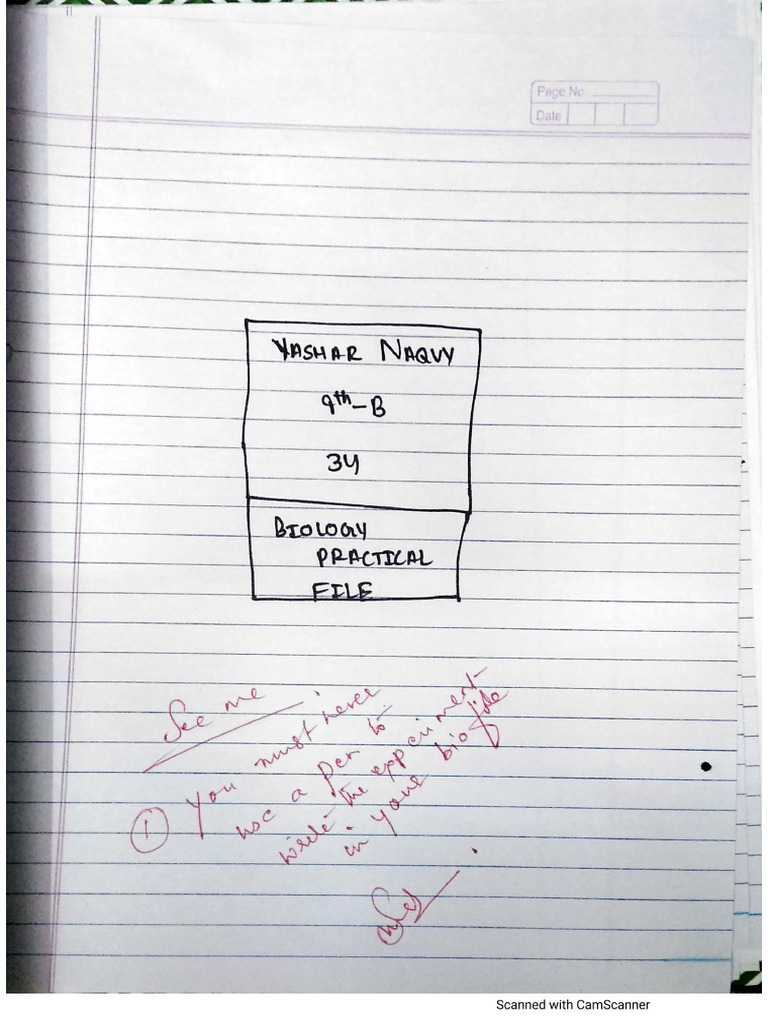 Page No
Date
YASHAR NAQVY
9th-B
34
BIOLOGY
PRACTICAL
FILE
See me
① You must never
use a pen to
write the experiment
in your bio file
Scanned with CamScanner